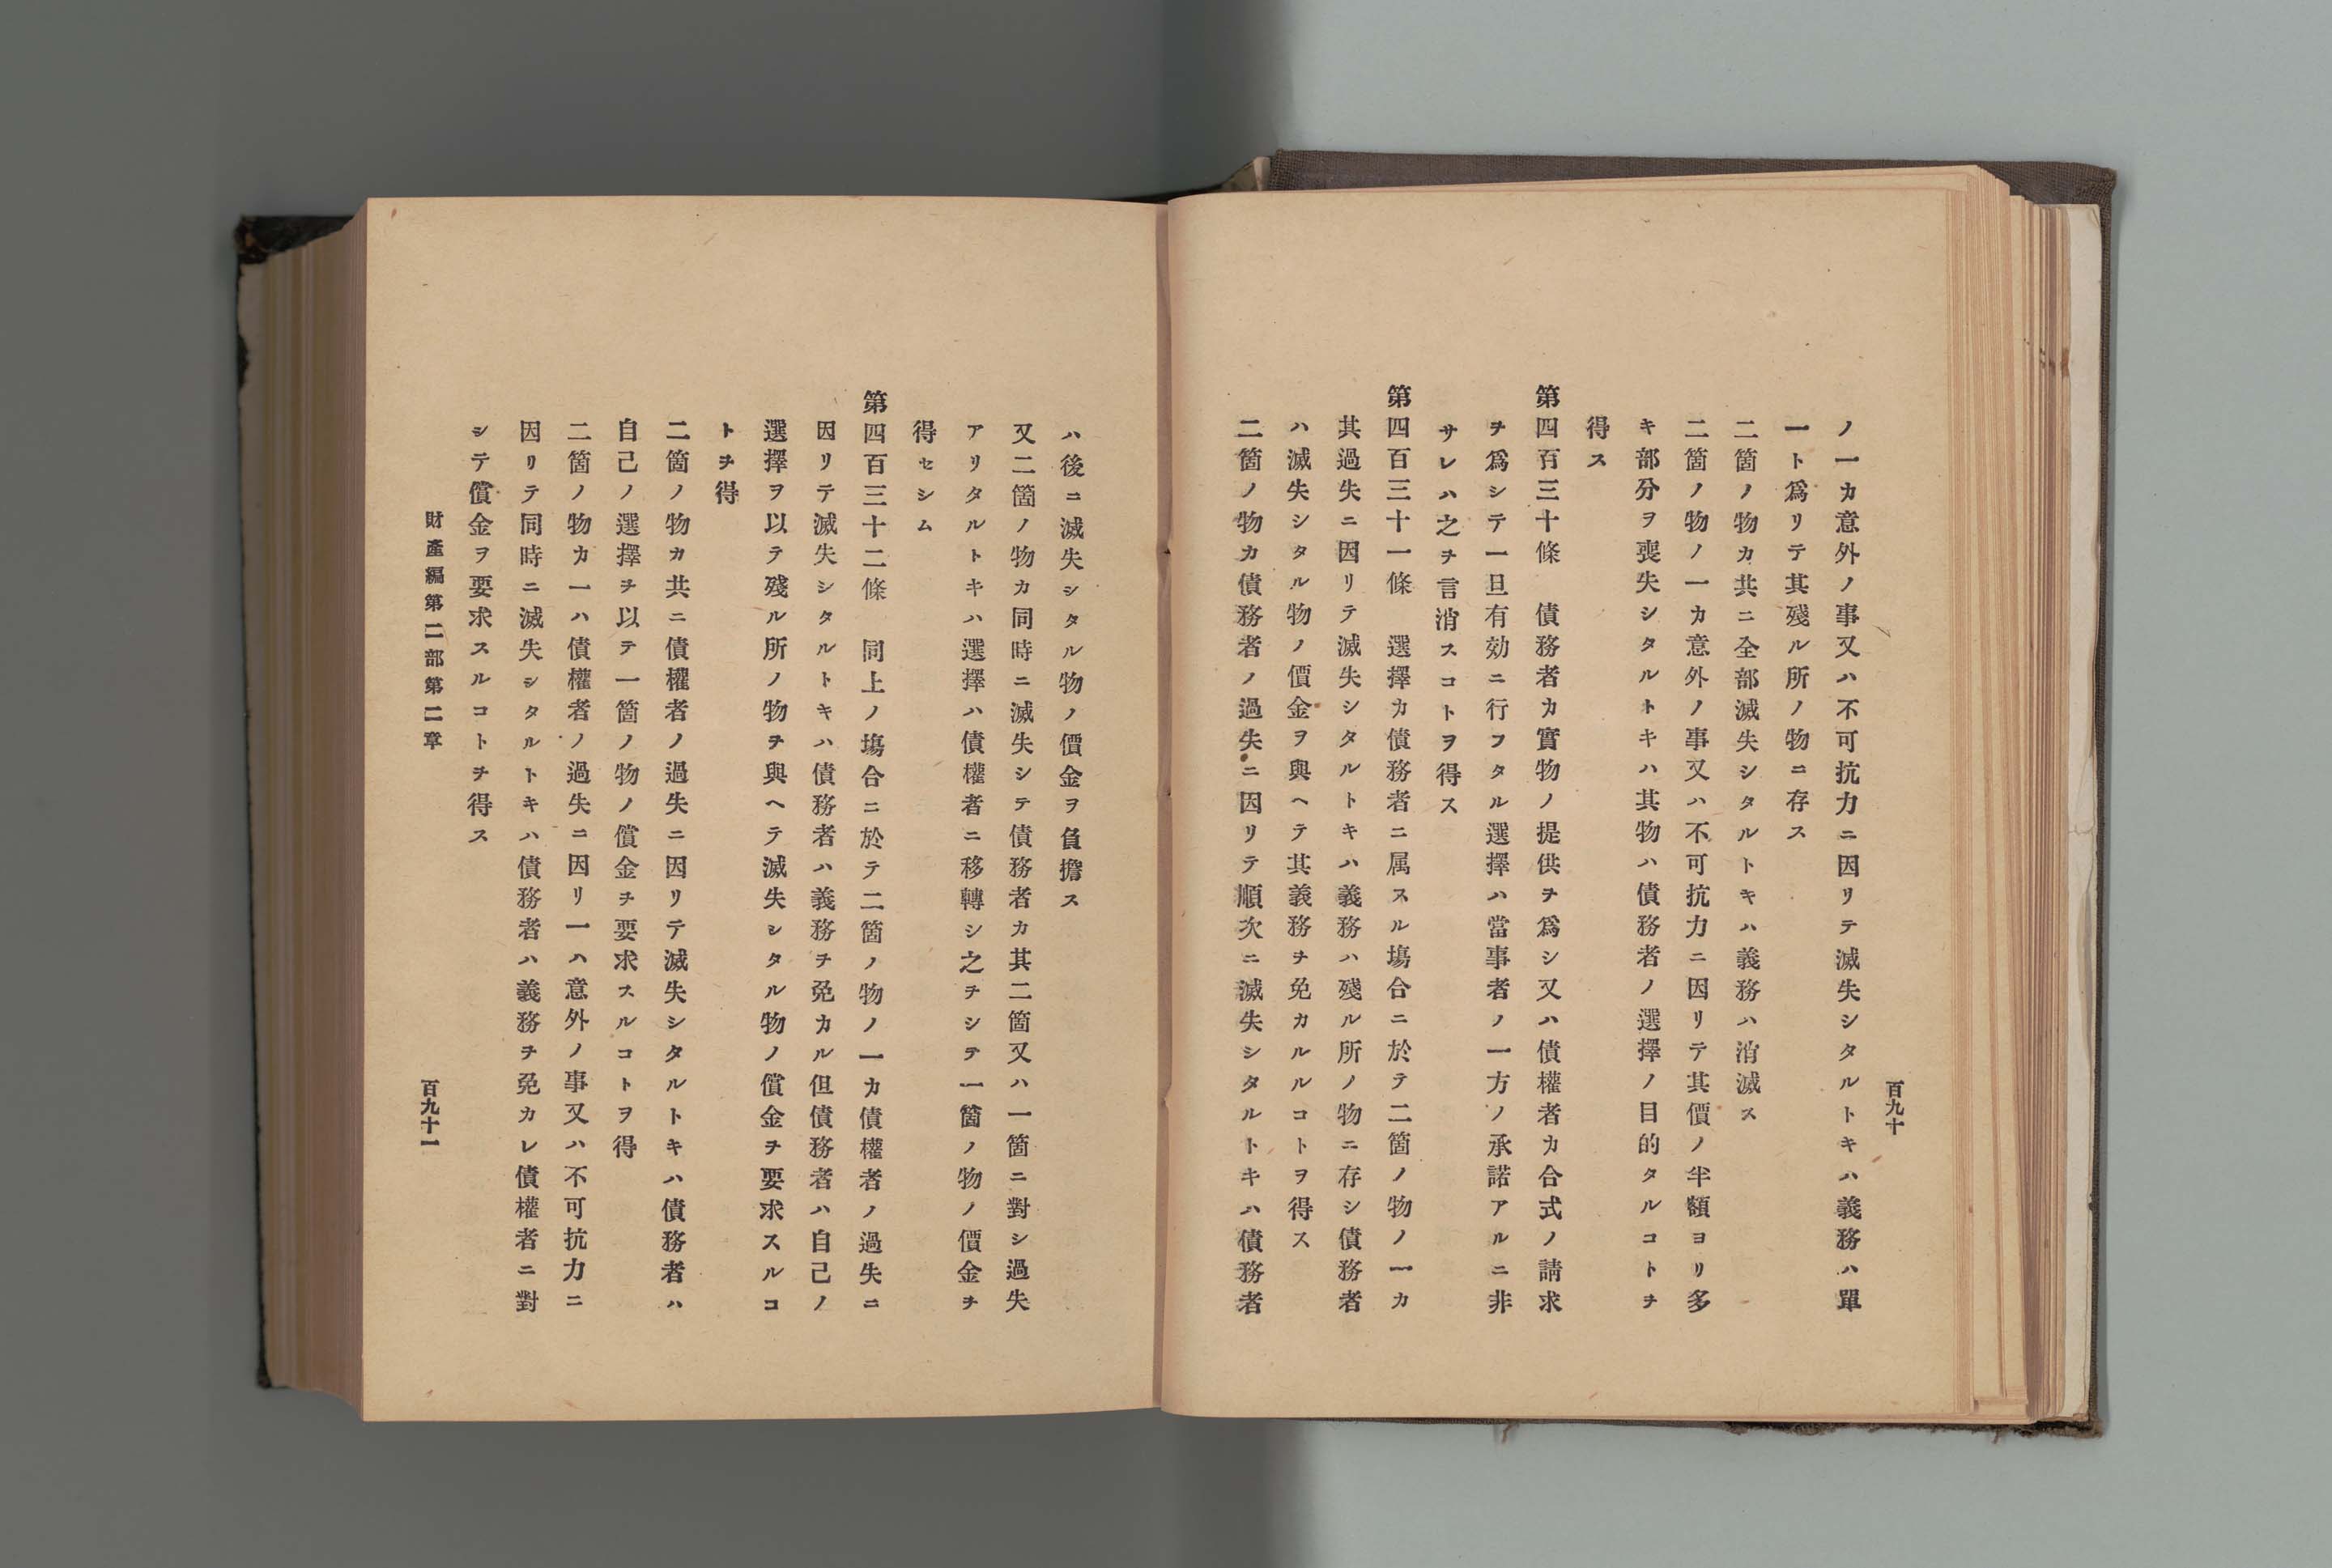 百九十
ノ一カ意外ノ事又ハ不可抗力ニ因リテ滅失シタルトキハ義務ハ單
一ト爲リテ其殘ル所ノ物ニ存ス
二箇ノ物カ共ニ全部滅失シタルトキハ義務ハ消滅ス
二箇ノ物ノ一カ意外ノ事又ハ不可抗力ニ因リテ其價ノ半額ヨリ多
キ部分ヲ喪失シタルトキハ其物ハ債務者ノ選擇ノ目的タルコトヲ
得ス
第四百三十條　債務者カ實物ノ提供ヲ爲シ又ハ債權者カ合式ノ請求
ヲ爲シテ一旦有効ニ行フタル選擇ハ當事者ノ一方ノ承諾アルニ非
サレハ之ヲ言消スコトヲ得ス
第四百三十一條　選擇カ債務者ニ属スル塲合ニ於テ二箇ノ物ノ一カ
其過失ニ因リテ滅失シタルトキハ義務ハ殘ル所ノ物ニ存シ債務者
ハ滅失シタル物ノ價金ヲ與ヘテ其義務ヲ免カルルコトヲ得ス
二箇ノ物カ債務者ノ過失ニ因リテ順次ニ滅失シタルトキハ債務者
ハ後ニ滅失シタル物ノ價金ヲ負擔ス
又二箇ノ物カ同時ニ滅失シテ債務者カ其二箇又ハ一箇ニ對シ過失
アリタルトキハ選擇ハ債權者ニ移轉シ之ヲシテ一箇ノ物ノ價金ヲ
得セシム
第四百三十二條　同上ノ塲合ニ於テ二箇ノ物ノ一カ債權者ノ過失ニ
因リテ滅失シタルトキハ債務者ハ義務ヲ免カル但債務者ハ自己ノ
選擇ヲ以テ殘ル所ノ物ヲ與ヘテ滅失シタル物ノ償金ヲ要求スルコ
トヲ得
二箇ノ物カ共ニ債權者ノ過失ニ因リテ滅失シタルトキハ債務者ハ
自己ノ選擇ヲ以テ一箇ノ物ノ償金ヲ要求スルコトヲ得
二箇ノ物カ一ハ債權者ノ過失ニ因リ一ハ意外ノ事又ハ不可抗力ニ
因リテ同時ニ滅失シタルトキハ債務者ハ義務ヲ免カレ債權者ニ對
シテ償金ヲ要求スルコトヲ得ス
財產編第二部第二章
百九十一